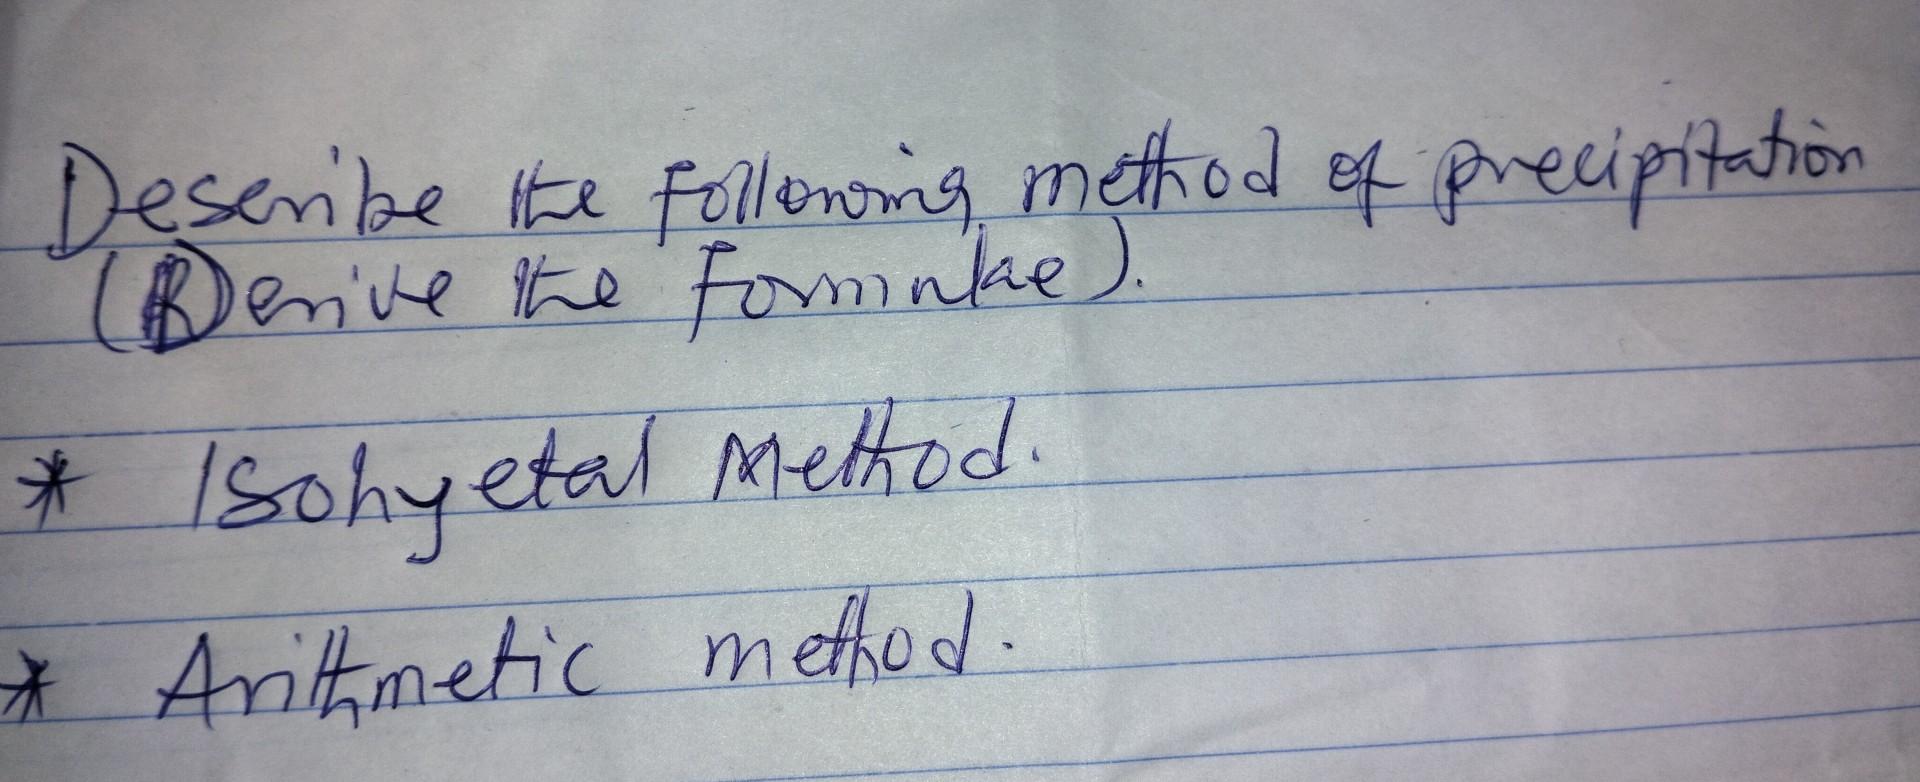 Describe the following method of precipitation
(Derive the formulae).
* Isohyetal Method.
* Arithmetic method.